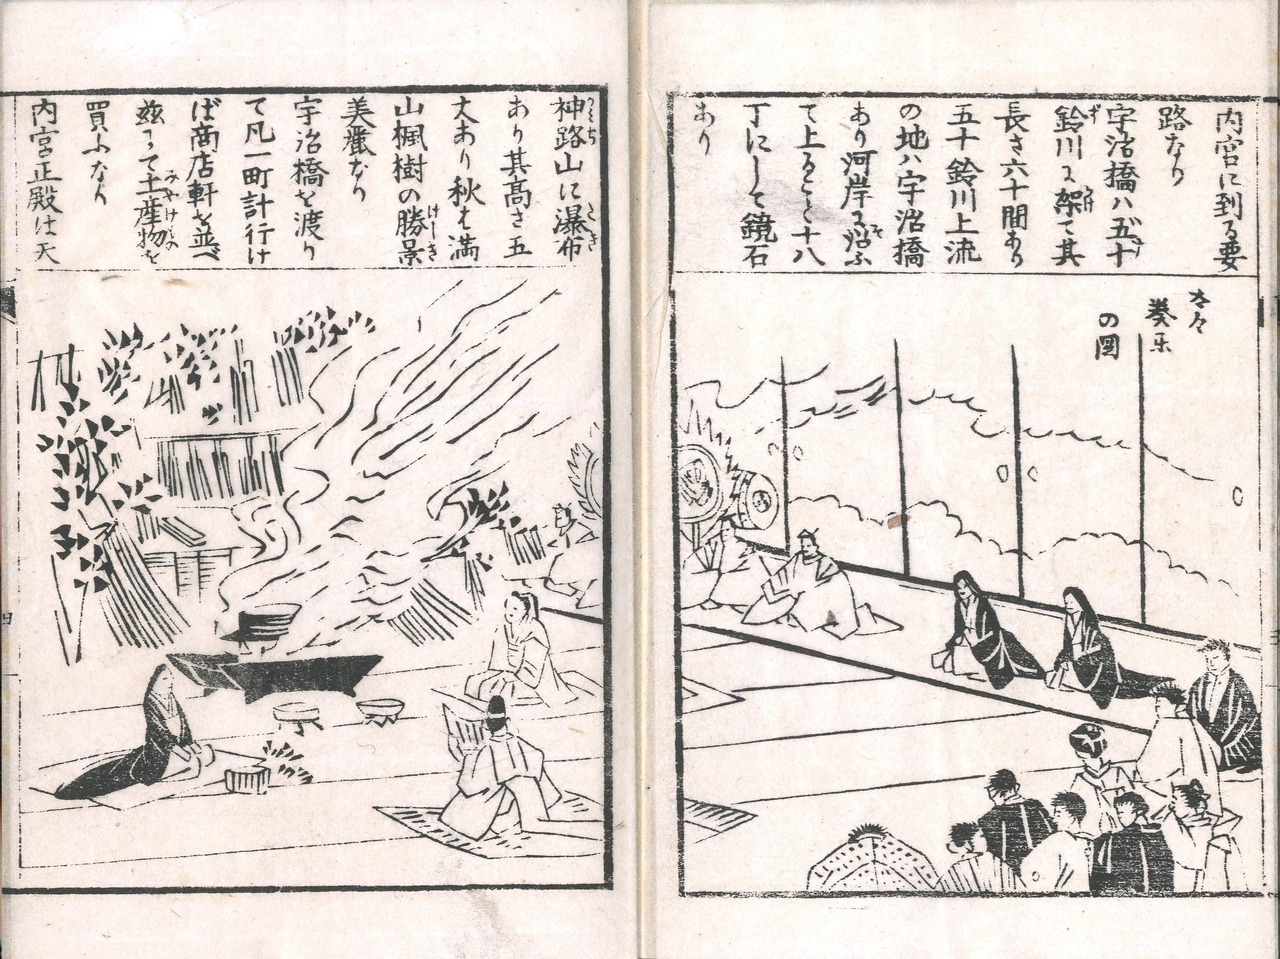 内宮に到る要
路なり
宇治橋ハ五十
鈴川に架て其
長さ六十間あり
五十鈴川上流
の地ハ宇治橋
あり河岸に沿ふ
て上ると十八
丁にして鏡石
あり
太々
奏楽
の図
神路山に瀑布
あり其高さ五
丈あり秋は満
山楓樹の勝景
美麗なり
宇治橋を渡り
て凡一町計行け
ば商店軒を並べ
茲にて土産物を
買ふなり
内宮正殿は天
四